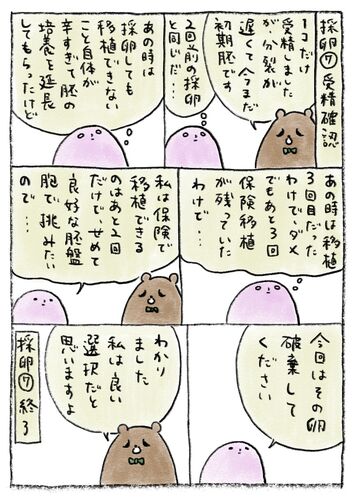 採卵⑦受精確認
1コだけ
受精しました
が、分裂が
遅くて今まだ
初期胚です
2回前の採卵
と同じだ…
あの時は
採卵しても
移植できない
こと自体が
辛すぎて胚の
培養を延長
してもらったけど
あの時は移植
3回目だった
わけで、ダメ
でもあと3回
保険移植
が残っていた
わけで…
私は保険で
移植できる
のはあと2回
だけで、せめて
良好な胚盤
胞で挑みたい
ので…
今回はその卵
破棄して
ください
わかり
ました
私は良い
選択だと
思いますよ
採卵⑦終了